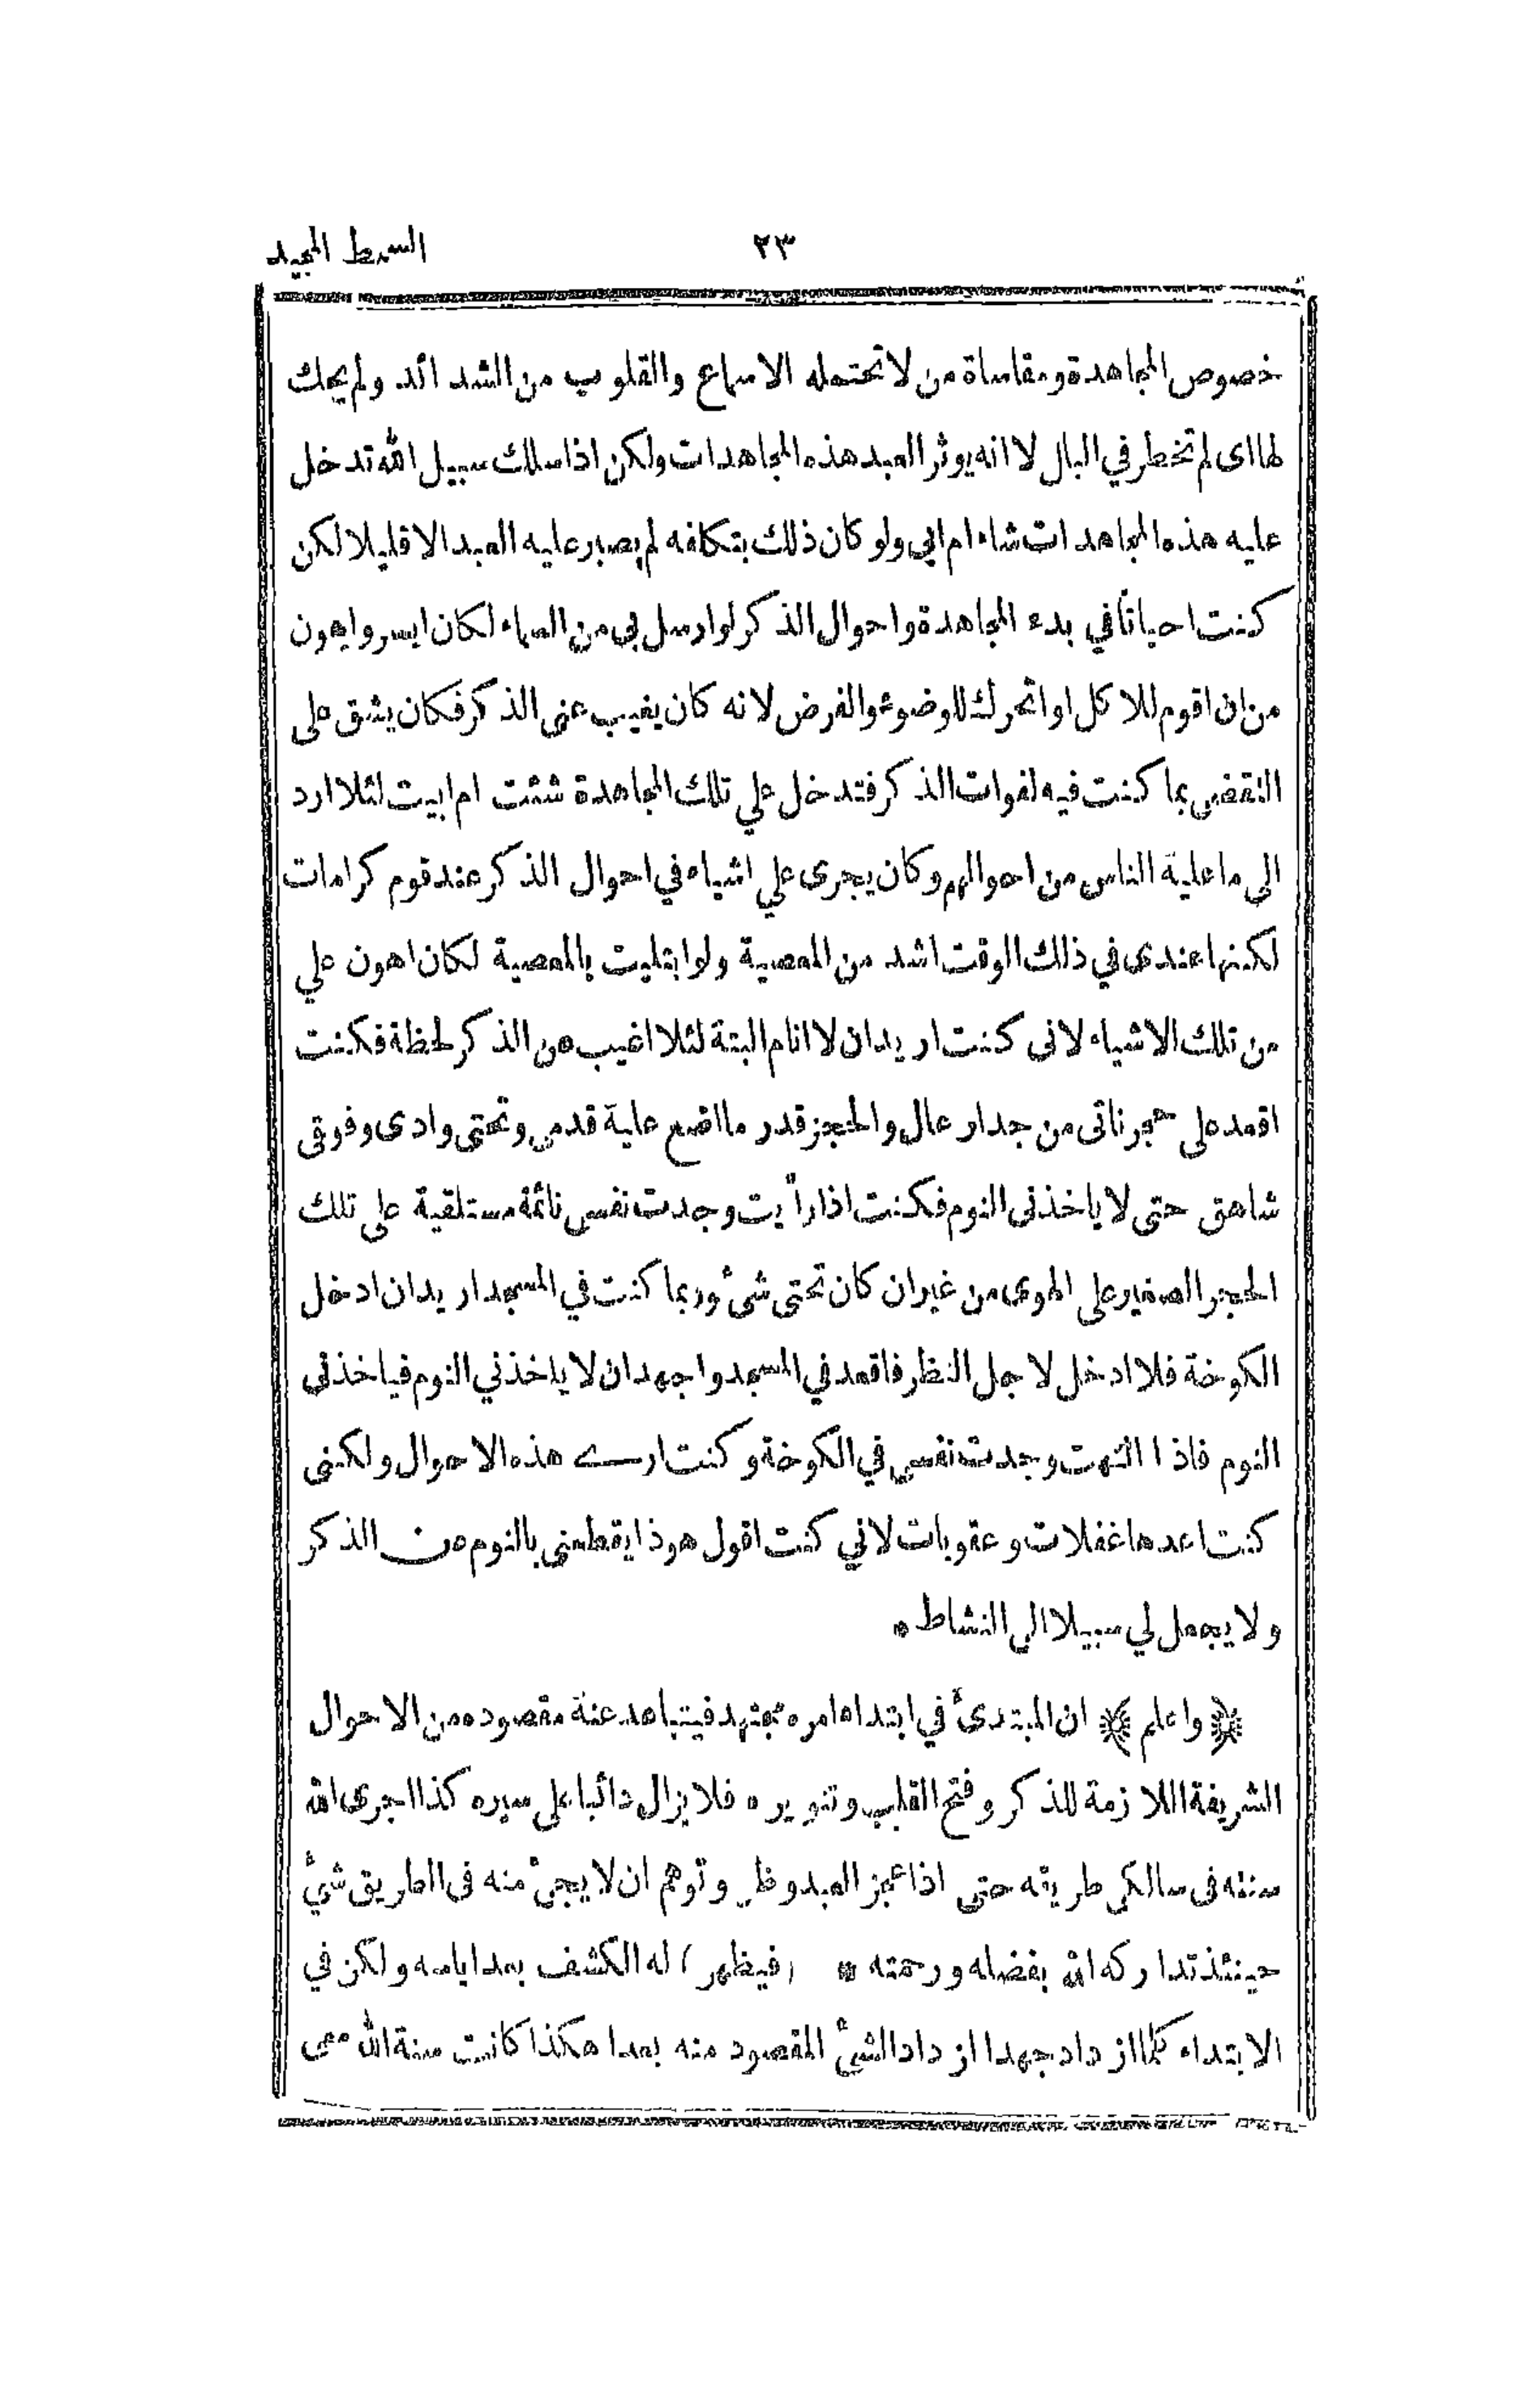 السمط المجيد
٢٣
خصوص المجاهدة ومقاساة من لا تحتمله الاسماع والقلوب من الشدائد ولم يحك
لها اى لم تخطر في البال لا انه يوثر العبد هذه المجاهدات ولكن اذا سلك سبيل الله تدخل
عليه هذه المجاهدات شاء ام ابى ولو كان ذلك بتكلفه لم يصبر عليه العبد الا قليلا لكن
كنت احيانًا في بدء المجاهدة واحوال الذكر لو ارسل بى من السماء لكان ايسر واهون
من ان اقوم للاكل او اتحرك للوضوء والفرض لانه كان يغيب عنى الذكر فكان يشق على
النقض بما كنت فيه لفوات الذكر فتدخل علي تلك المجاهدة شئت ام ابيت لئلا ارد
الى ما عليه الناس من احوالهم وكان يجرى علي اشياء في احوال الذكر عند قوم كرامات
لكنها عندى في ذلك الوقت اشد من المعصية ولو ابتليت بالمعصية لكان اهون علي
من تلك الاشياء لانى كنت اريد ان لا انام البتة لئلا اغيب عن الذكر لحظة فكنت
اقعد على حجر ناتى من جدار عال والحجر قدر ما اضع عليه قدمى وتحتى وادى وفوقى
شاهق حتى لا ياخذنى النوم فكنت اذا رأيت وجدت نفسى نائمة مستلقية على تلك
الحجر الصغير على الهوى من غير ان كان تحتى شئ وربما كنت في المسجد اريد ان ادخل
الكوخة فلا ادخل لاجل النظر فاقعد في المسجد واجهد ان لا ياخذني النوم فياخذنى
النوم فاذا انتبهت وجدت نفسي في الكوخة وكنت ارے هذه الاحوال ولكنى
كنت اعدها غفلات وعقوبات لاني كنت اقول هوذا يقطعنى بالنوم عن الذكر
ولا يجعل لي سبيلا الى النشاط ٥
﴿ واعلم ﴾ ان المبتدئ في ابتداء امره مجتهد فيتباعد عنه مقصوده من الاحوال
الشريفة اللازمة للذكر وفتح القلب وتنويره فلا يزال دائبا على سيره كذا اجرى الله
سنته فى سالكى طريقه حتى اذا عجز العبد وظن وتوهم ان لا يجئ منه فى الطريق شئ
حينئذ تداركه الله بفضله ورحمته * (فيظهر) له الكشف بعد ايامه ولكن في
الابتداء كلما ازداد جهدا ازداد الشئ المقصود منه بعدا هكذا كانت سنة الله معى